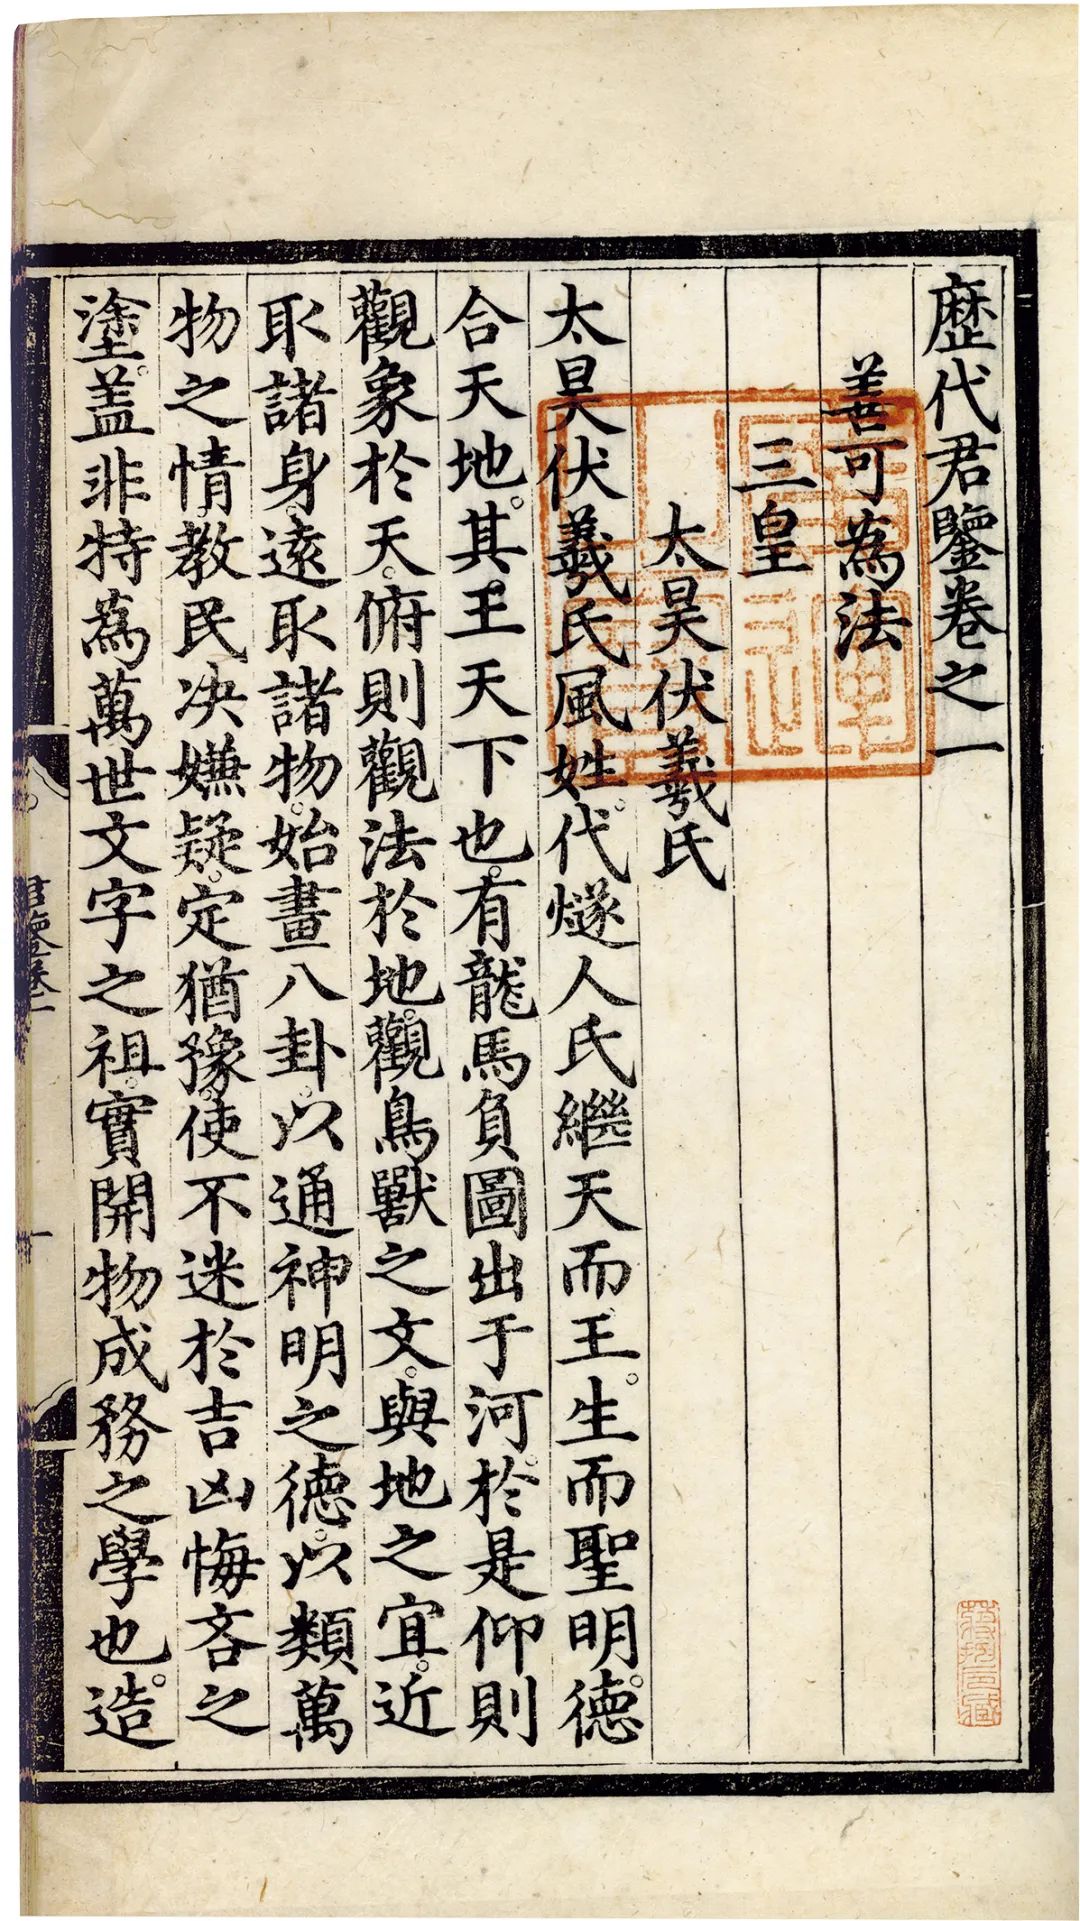 歷代君鑒卷之一
善可為法
三皇
太昊伏羲氏
太昊伏羲氏風姓。代燧人氏繼天而王。生而聖明。德
合天地。其王天下也。有龍馬負圖出于河。於是仰則
觀象於天。俯則觀法於地。觀鳥獸之文。與地之宜。近
取諸身。遠取諸物。始畫八卦。以通神明之德。以類萬
物之情。教民決嫌疑。定猶豫。使不迷於吉凶悔吝之
塗。蓋非特為萬世文字之祖。實開物成務之學也。造